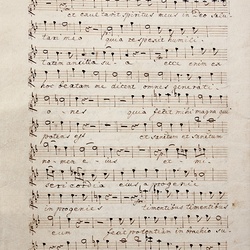 et exultavit spiritus meus in Deo salu
tari meo quia respexit humili
tatem ancillae suae ecce enim ex
hoc beatam me dicent omnes generati
ones quia fecit mihi magna qui
potens est et sanctum et sanctum
nomen ejus et mi
sericordia ejus a progenie
in progenies timentibus timentibus
eum fecit potentiam in brachio su